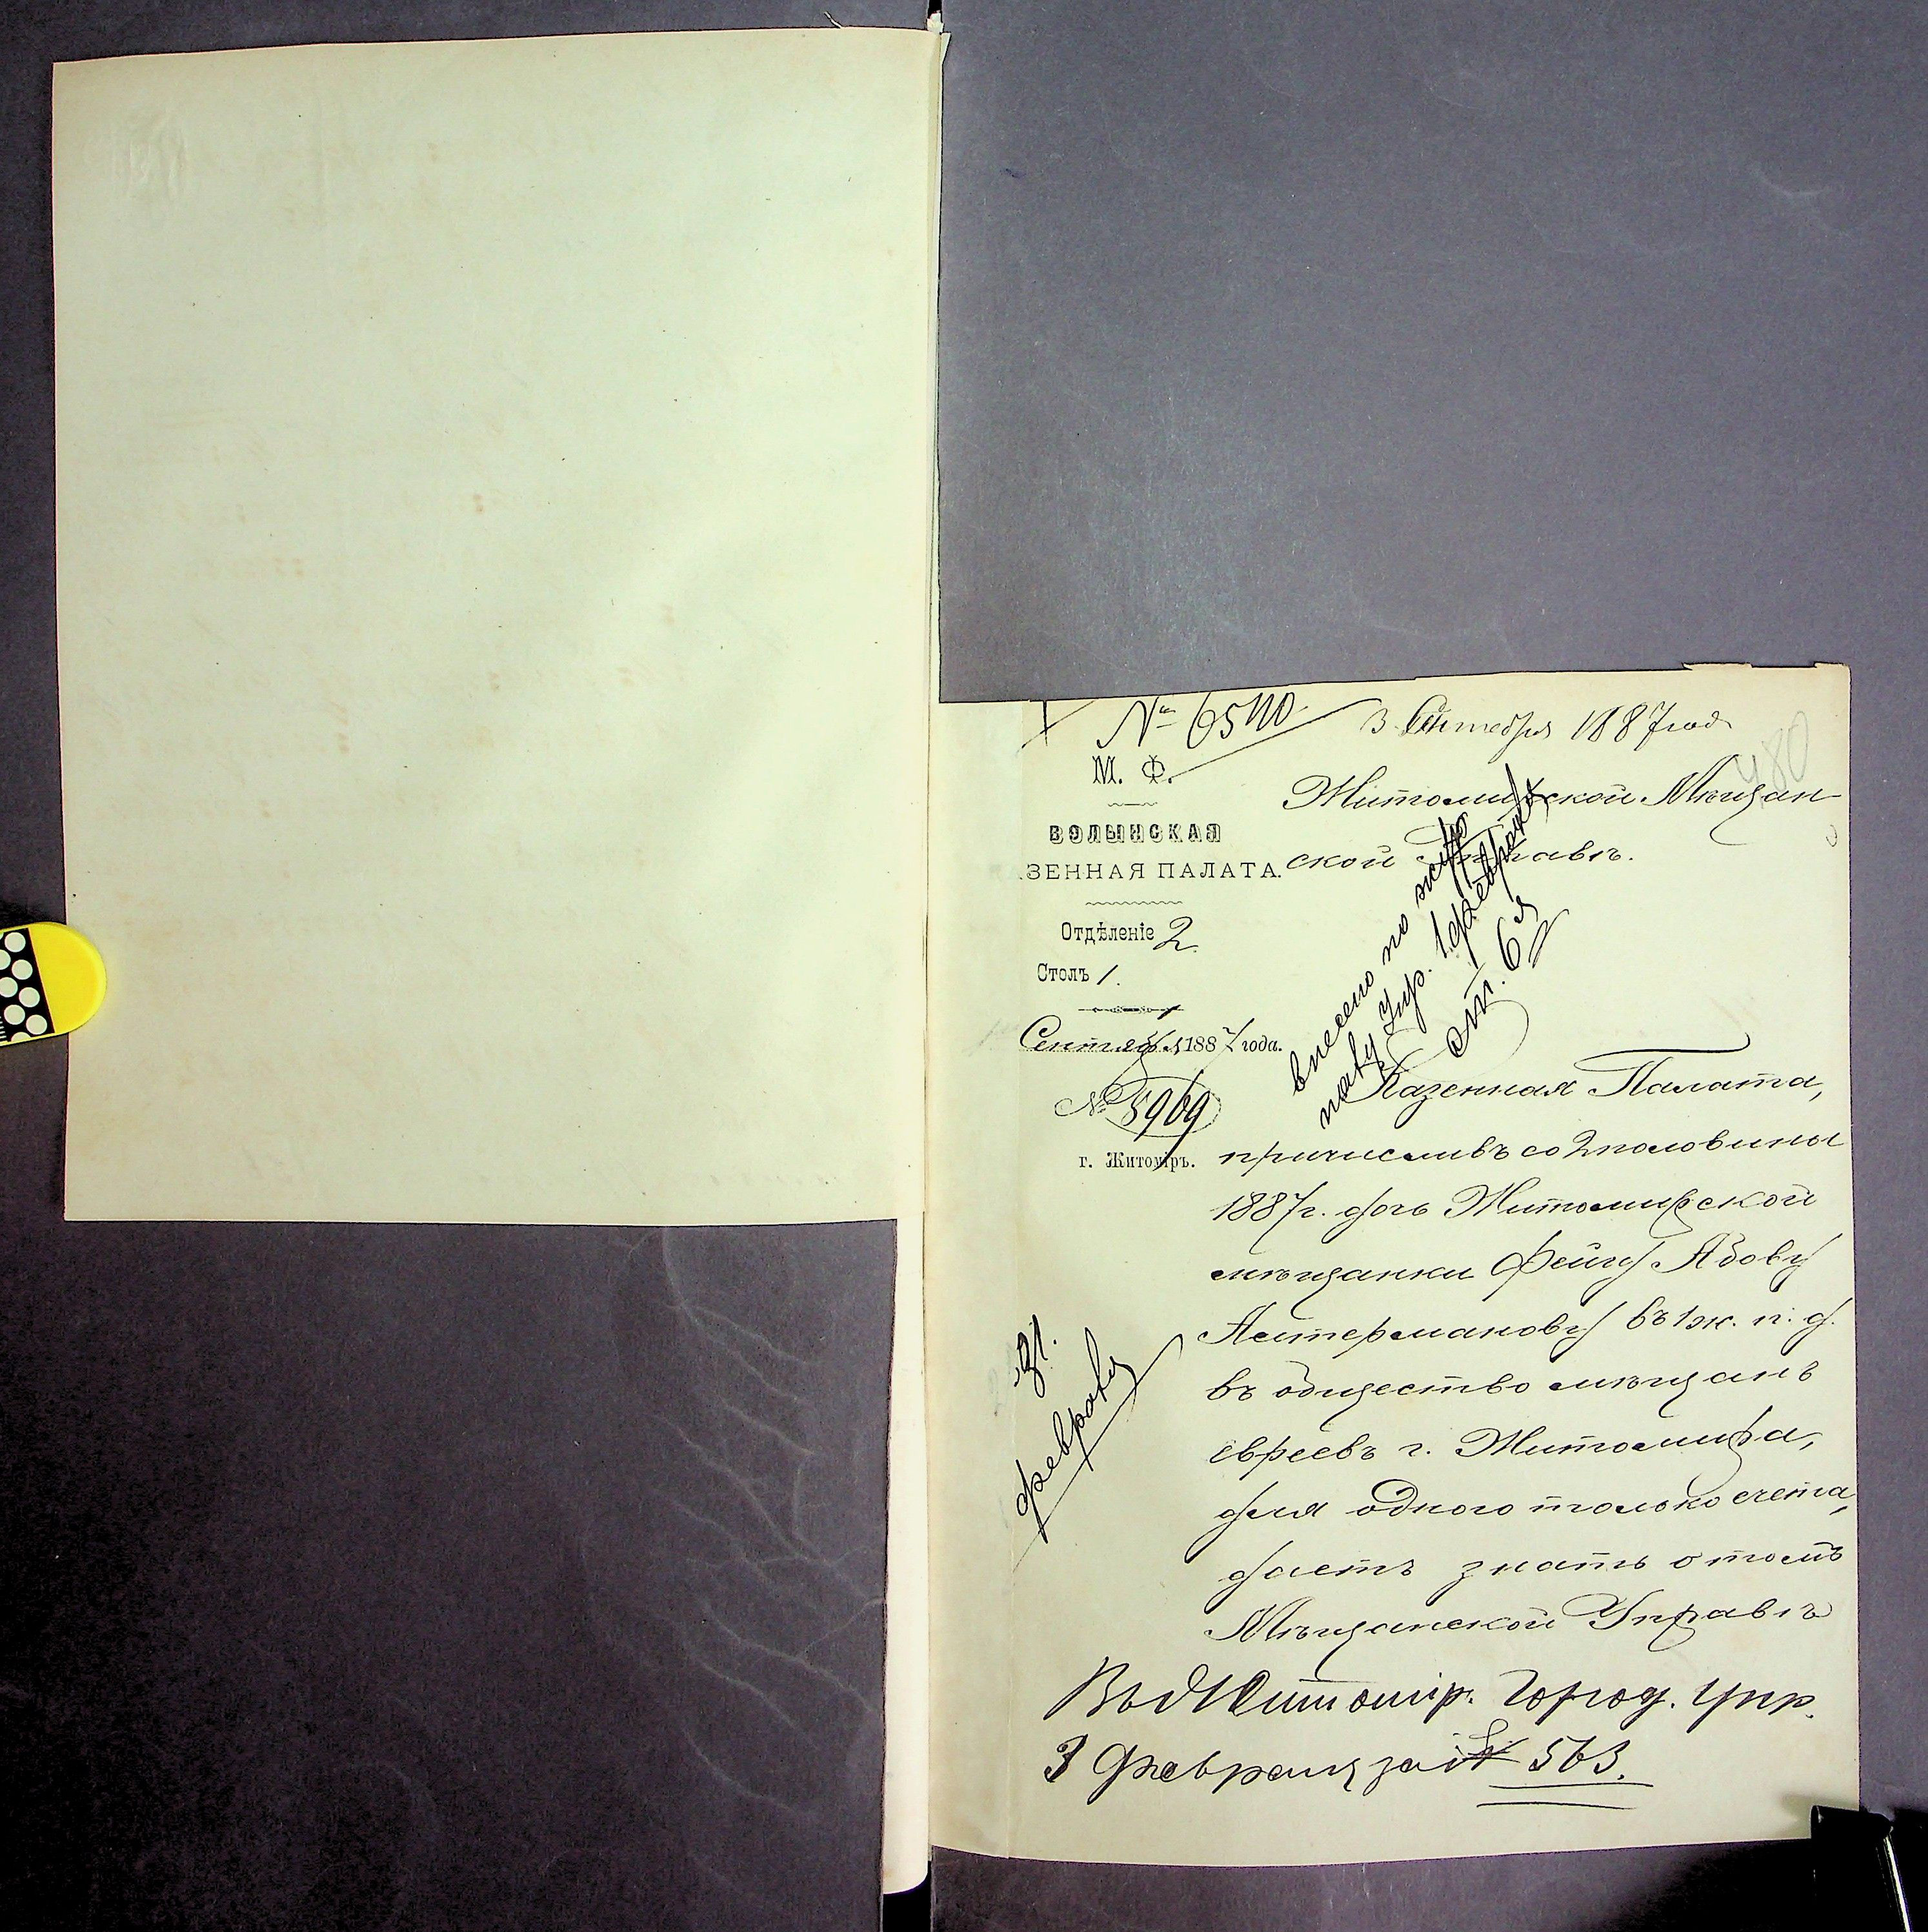 № 6540 3 Сентября 1887 года
480
М. Ф.
ВОЛЫНСКАЯ
ЗЕННАЯ ПАЛАТА.
Отдѣленіе 2.
Столъ 1.
Сентября 1887 года.
№ 8969
г. Житоміръ.
Житомирской Мѣщан-
ской Управѣ.
внесено по
Упр. 1 февраля
ст. 6
Казенная Палата,
причисливъ со 2 половины
1887 г. дочь Житомирской
мѣщанки Фейгу Абову
Астерманову въ 1 ж. п. д.
въ общество мѣщанъ
евреевъ г. Житомира,
для одного только счета,
даетъ знать о томъ
Мѣщанской Управѣ
31.
февралу
Въ Житомір. Город. Упр.
3 Февраля за № 563.